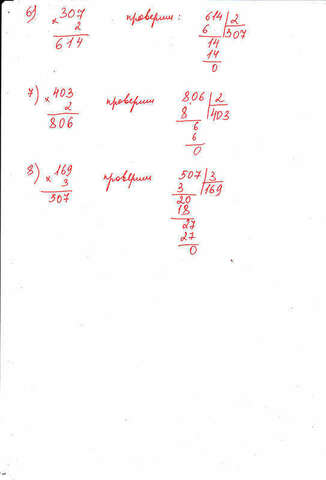 6) × 307 проверим: 614 | 2
2 6 | 307
614 14
14
0
7) × 403 проверим 806 | 2
2 8 | 403
806 6
6
0
8) × 169 проверим 507 | 3
3 3 | 169
507 20
18
27
27
0